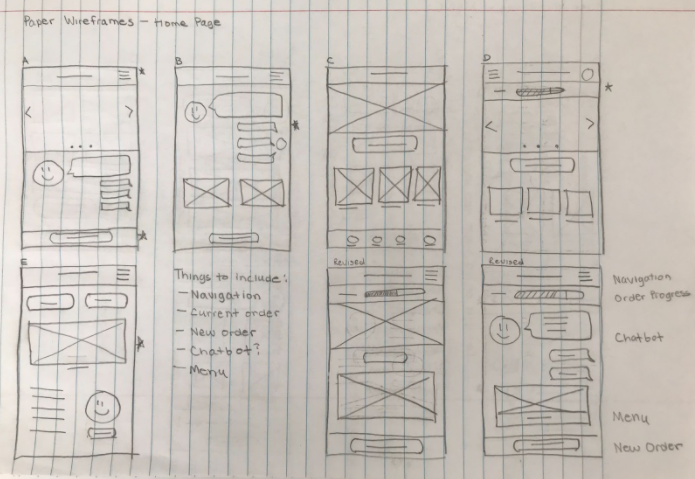 Paper Wireframes - Home Page
A
B
C
D
E
Things to include:
- Navigation
- Current order
- New order
- Chatbot?
- Menu
Revised
Revised
Navigation
Order Progress
Chatbot
Menu
New Order